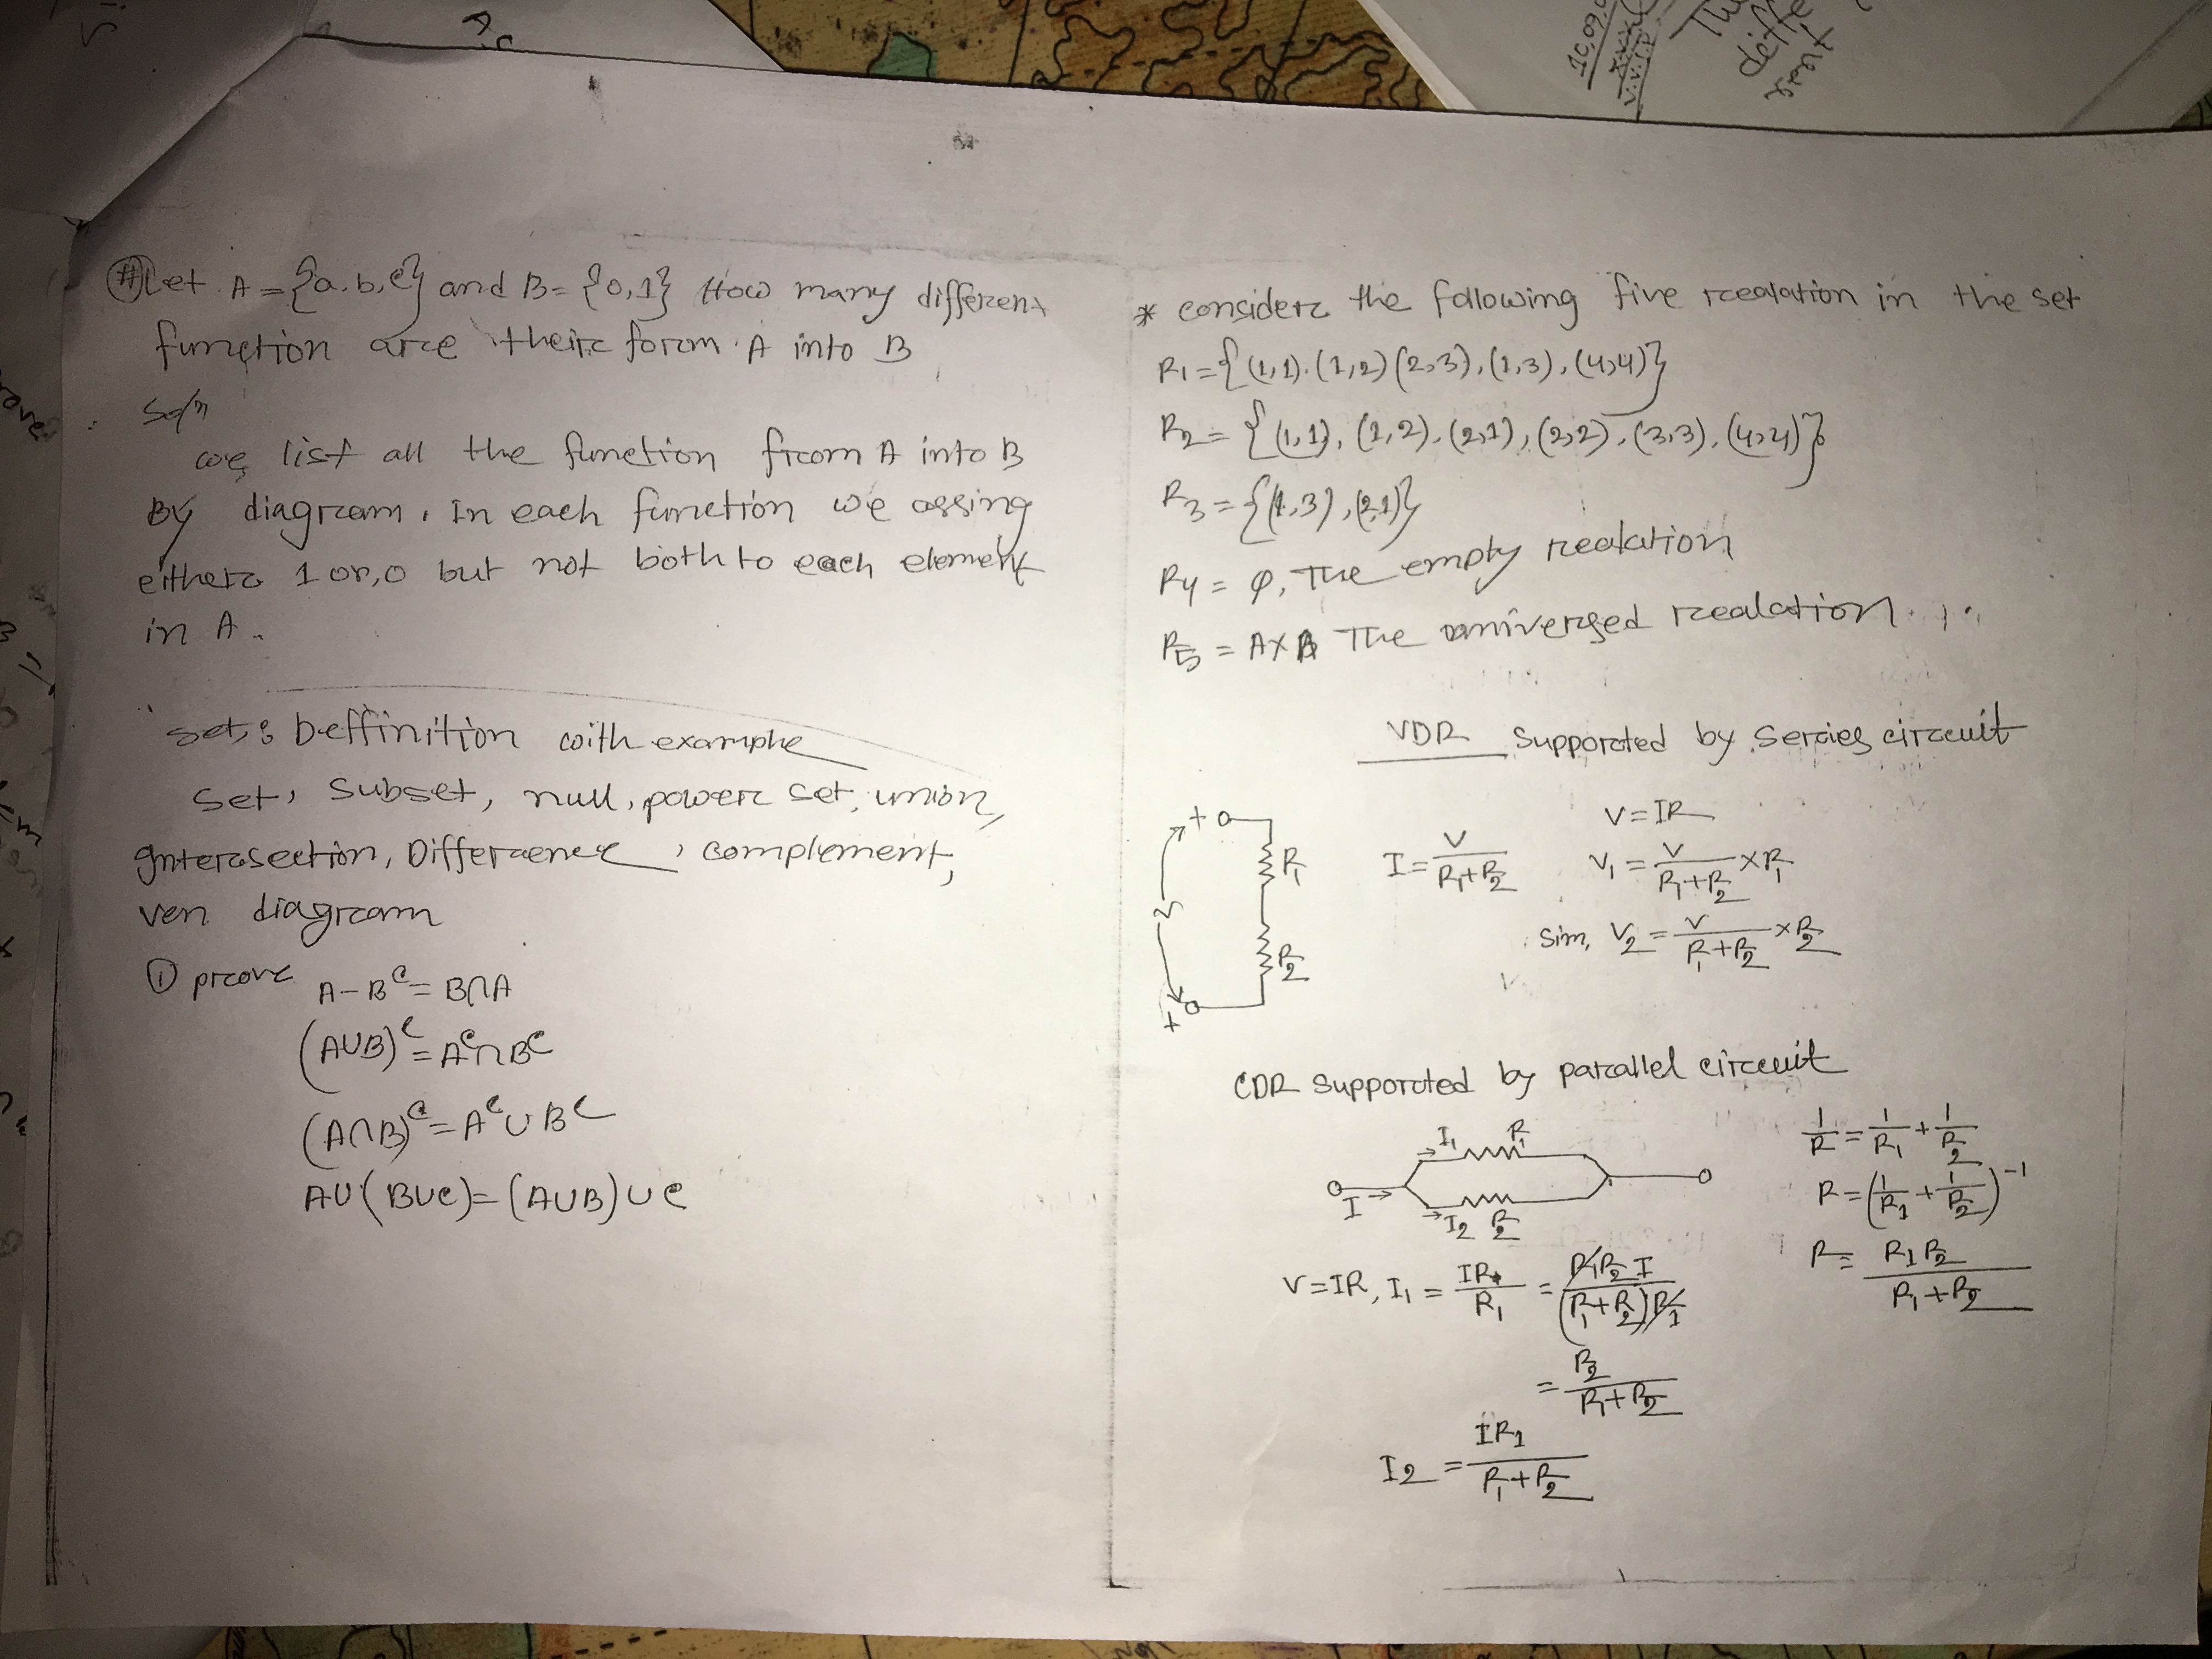 #Let A = {a, b, c} and B = {0,1} How many different
function are their form A into B
Soln
we list all the function from A into B
By diagram. In each function we assing
either 1 or, 0 but not both to each element
in A.
set: Deffinition with examphe
Set, Subset, null, power set, union,
Intersection, Difference, complement,
ven diagram
① prove A - Bᶜ = B∩A
(A∪B)ᶜ = Aᶜ∩Bᶜ
(A∩B)ᶜ = Aᶜ∪Bᶜ
A∪(B∪C) = (A∪B)∪C
* consider the following five realation in the set
R1 = {(1,1), (1,2) (2,3), (1,3), (4,4)}
R2 = {(1,1), (1,2), (2,1), (2,2), (3,3), (4,4)}
R3 = {(1,3), (2,1)}
R4 = φ, The empty realation
R5 = A×A The universed realation
VDR Supported by Series circuit
V = IR
+ R₁ I = V/(R₁+R₂) V₁ = V/(R₁+R₂) × R₁
R₂ Sim, V₂ = V/(R₁+R₂) × R₂
+
CDR Supported by parallel circuit
I₁ R₁ 1/R = 1/R₁ + 1/R₂
I I₂ R₂ R = (1/R₁ + 1/R₂)⁻¹
V = IR, I₁ = IR/R₁ = R₁R₂I/(R₁+R₂)R₁ R = R₁R₂/(R₁+R₂)
= R₂/(R₁+R₂)
I₂ = IR₁/(R₁+R₂)